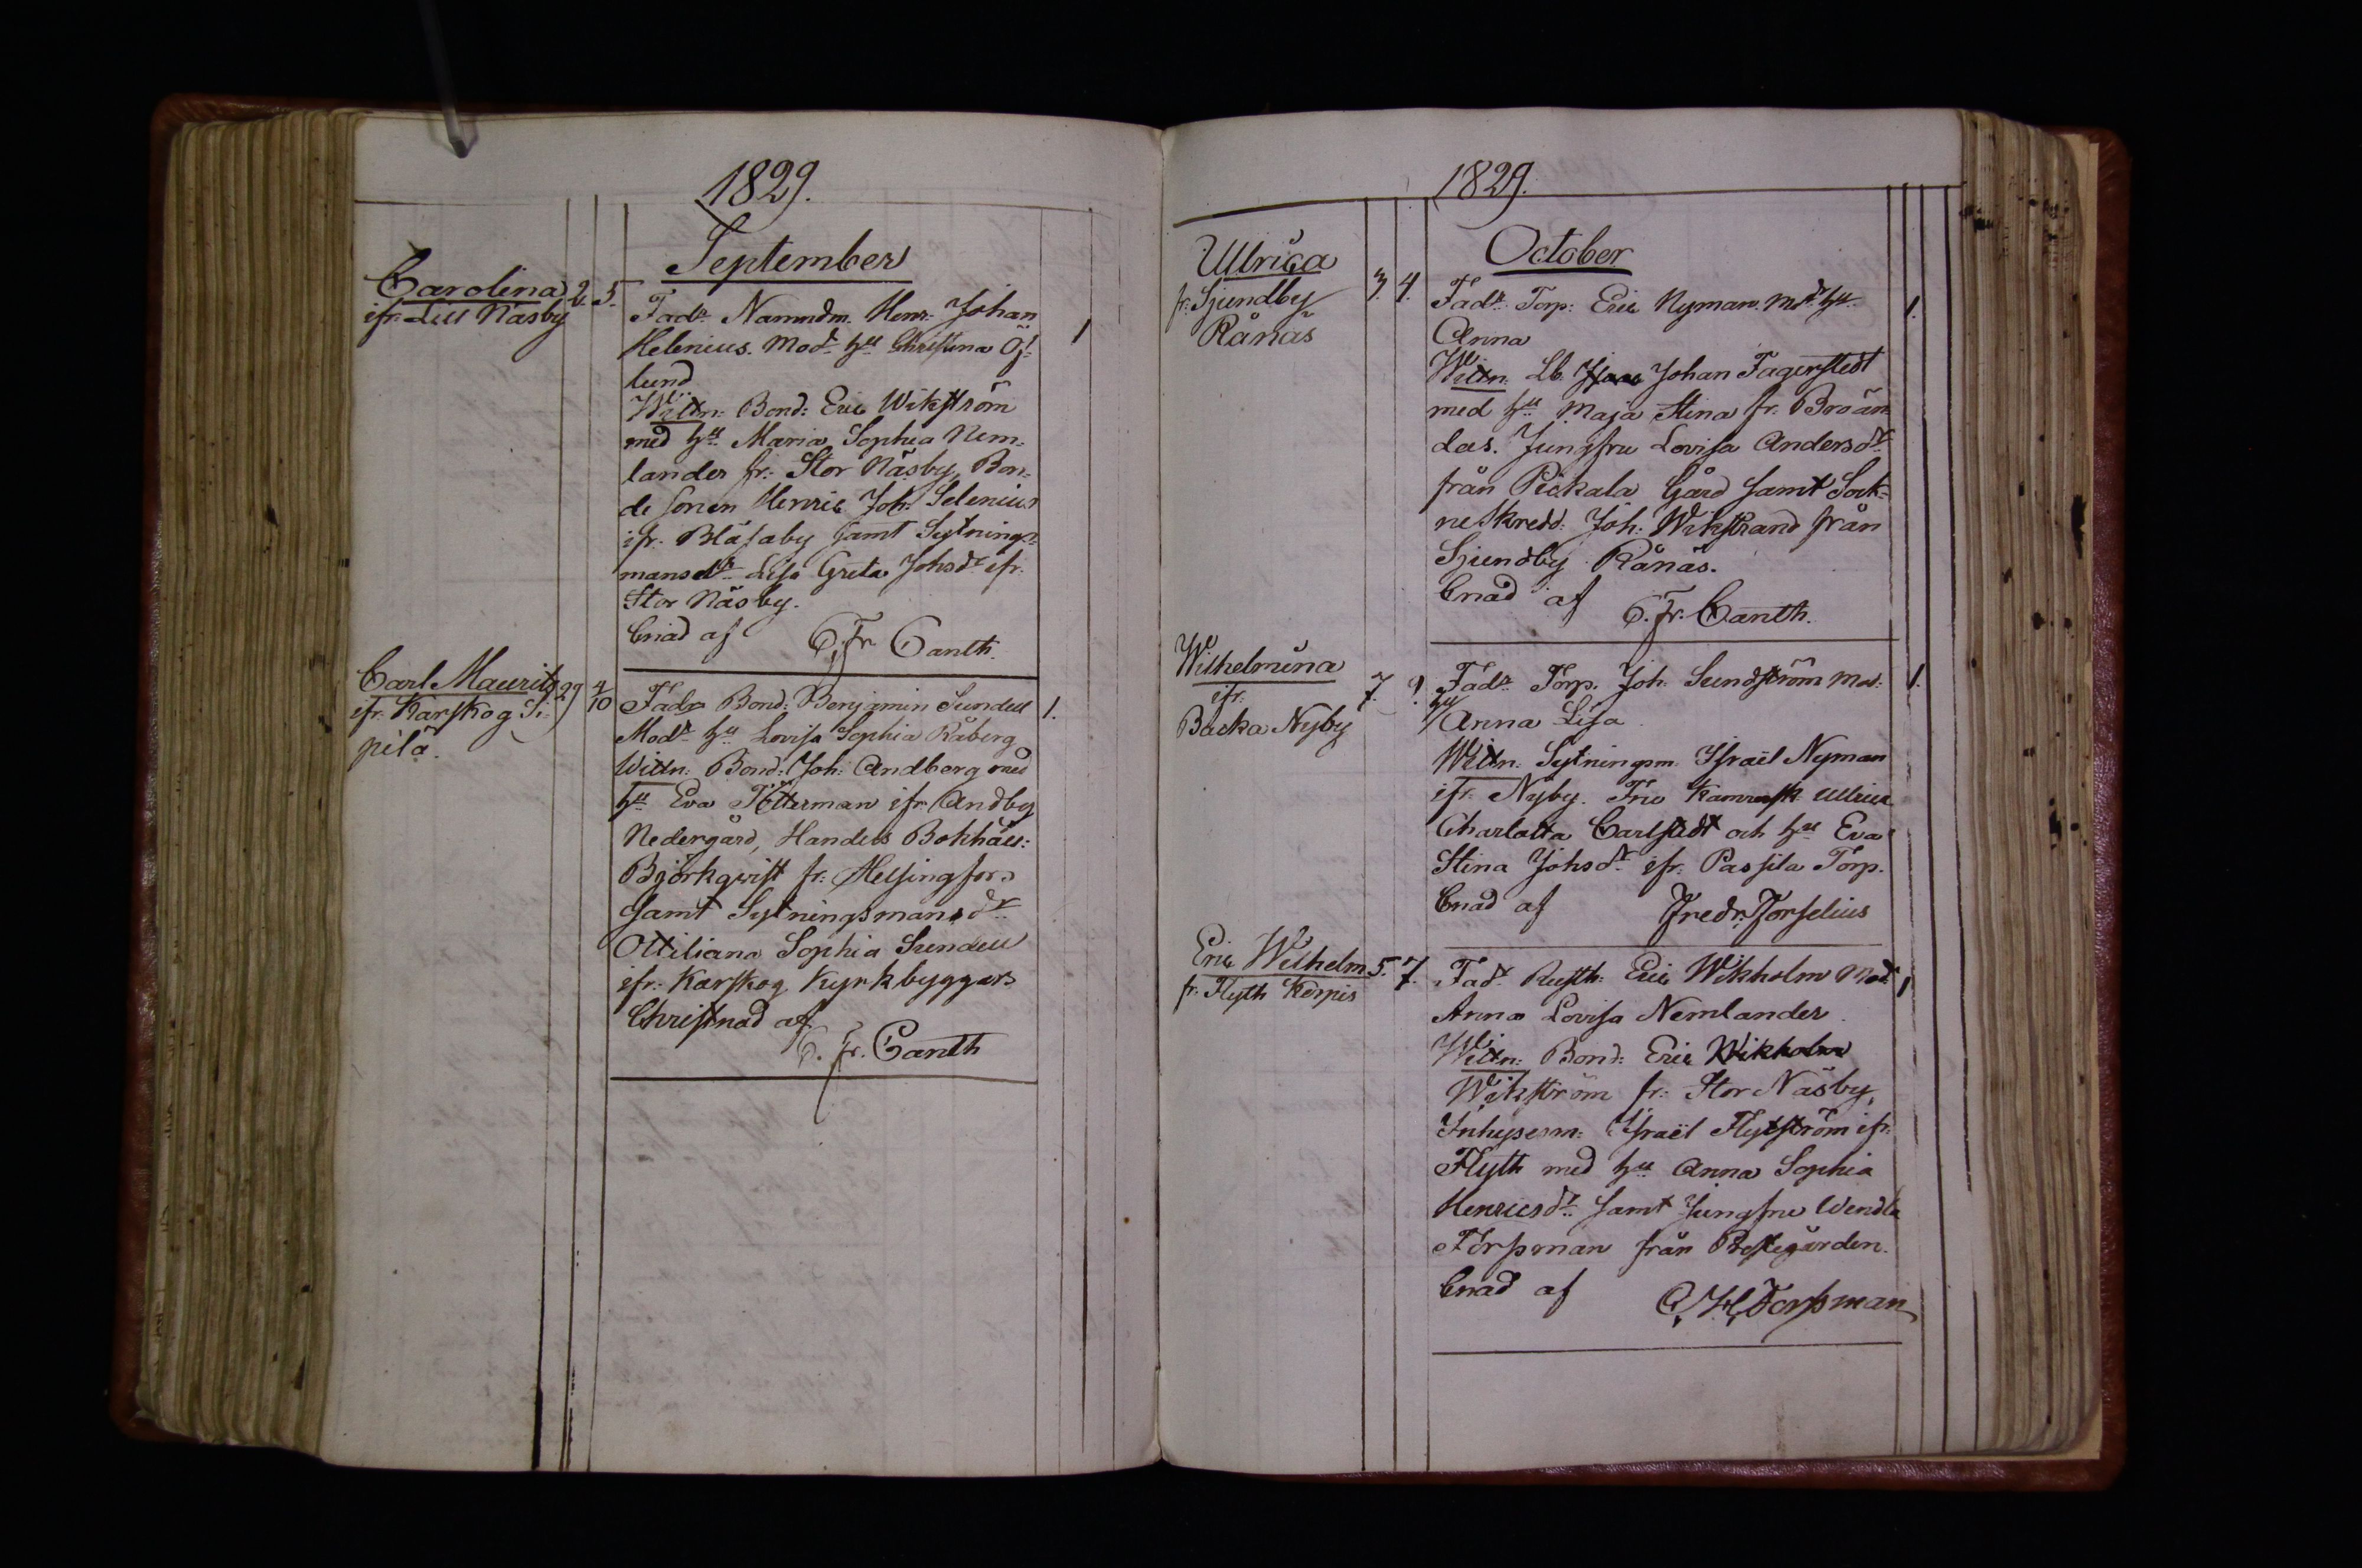 1829.
September
Carolina
ifr. Lill Näsby
2. 5.
Fadr. Nämndm. Henr. Johan
Helenius. Modr. Hu Christina Öf-
lund
Wittn: Bond: Eric Wikström
med Hu Maria Sophia Nem-
lander fr: Stor Näsby, Bon-
de sonen Henric Joh: Selenius
ifr. Blåsaby samt Sytnings-
mansdr Lisa Greta Johsdr ifr.
Stor Näsby.
Cnad af C. Fr Canth.
1
Carl Mauritz
ifr. Karskog Si-
pilä.
29 4/10
Fadr Bond: Benjamin Sundell
Modr Hu Lovisa Sophia Råberg
Wittn: Bond: Joh: Andberg med
Hu Eva ifr Andby
Nedergård, Handels Bokhåll:
Björkqvist fr: Helsingfors
samt Sytningsmansdr
Ottiliana Sophia Sundell
ifr: Karskog Kyrkbyggars
Christnad af
C. Fr. Canth
1.
1829.
October
Ullrica
fr: Sjundby
Rånäs
3. 4.
Fadr Torp: Eric Nyman. Mdr Hu
Anna
Wittn. Lb. Johan Fagerstedt
med Hu Maja Stina fr. Broän
das. Jungfru Lovisa Andersdr
från Pickala Gård samt Sock-
neskredd: Joh: Wikstrand från
Sjundby Rånäs.
Cnad af C. Fr. Canth.
1.
Wilhelmina
ifr.
Backa Nyby
7. 9.
Fadr Torp. Joh: Sundström Mod:
Hu
Anna Lisa
Wittn. Sytningsm. Israël Nyman
ifr. Nyby. Fru Ullrica
Charlotta Carlstedt och Hu Eva
Stina Johsdr ifr. Passila Torp.
Cnad af Fredr. Forselius
1.
Eric Wilhelm
fr. Flyth Kerpis
5. 7.
Fadr Rusth: Eric Wikholm Modr
Anna Lovisa Nemlander.
Wittn: Bond: Eric Wikholm
Wikström fr: Stor Näsby,
Inhysesm: Israël Flytström ifr.
Flyth med Hu Anna Sophia
Henricsdr samt Jungfru Wendla
Forssman från Prestegården.
Cnad af C. H. Forssman
1